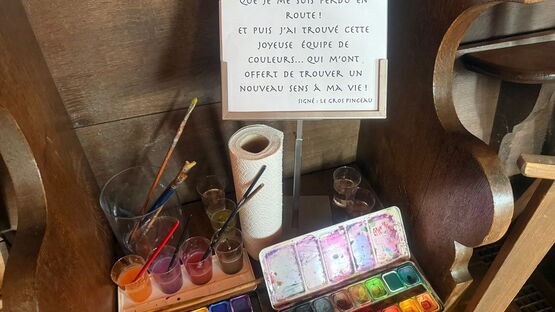 QUE JE ME SUIS PERDU EN
ROUTE !
ET PUIS J'AI TROUVÉ CETTE
JOYEUSE ÉQUIPE DE
COULEURS... QUI M'ONT
OFFERT DE TROUVER UN
NOUVEAU SENS À MA VIE !
SIGNÉ : LE GROS PINCEAU